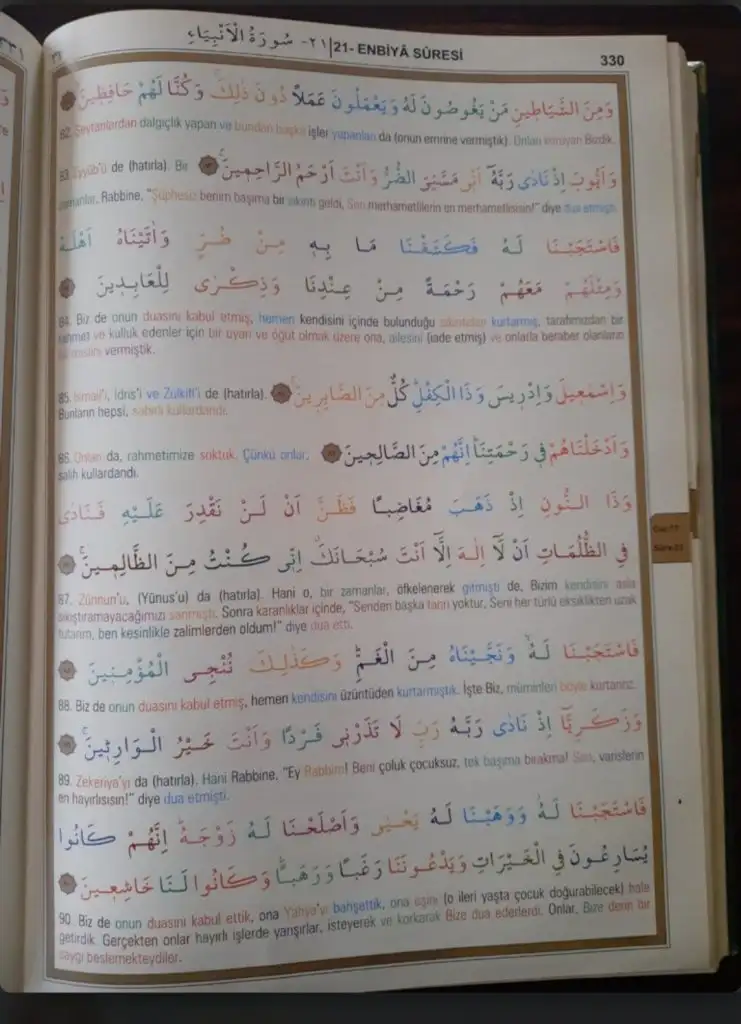 ٢١- سُورَةُ الْاَنْبِيَاءِ | 21- ENBİYÂ SÛRESİ
330
وَمِنَ الشَّيَاطٖينِ مَنْ يَغُوصُونَ لَهُ وَيَعْمَلُونَ عَمَلًا دُونَ ذٰلِكَۚ وَكُنَّا لَهُمْ حَافِظٖينَ
82. Şeytanlardan dalgıçlık yapan ve bundan başka işler yapanları da (onun emrine vermiştik). Onları koruyan Bizdik.
وَاَيُّوبَ اِذْ نَادٰى رَبَّهُٓ اَنّٖى مَسَّنِىَ الضُّرُّ وَاَنْتَ اَرْحَمُ الرَّاحِمٖينَۚ
83. Eyyûb'u de (hatırla). Bir
zamanlar, Rabbine, "Şüphesiz benim başıma bir sıkıntı geldi, Sen merhametlilerin en merhametlisisin!" diye dua etmişti.
فَاسْتَجَبْنَا لَهُ فَكَشَفْنَا مَا بِهٖ مِنْ ضُرٍّ وَاٰتَيْنَاهُ اَهْلَهُ
وَمِثْلَهُمْ مَعَهُمْ رَحْمَةً مِنْ عِنْدِنَا وَذِكْرٰى لِلْعَابِدٖينَ
84. Biz de onun duasını kabul etmiş, hemen kendisini içinde bulunduğu sıkıntıdan kurtarmış, tarafımızdan bir
rahmet ve kulluk edenler için bir uyarı ve öğüt olmak üzere ona, ailesini (iade etmiş) ve onlarla beraber olanların
bir mislini vermiştik.
وَاِسْمٰعٖيلَ وَاِدْرٖيسَ وَذَا الْكِفْلِۜ كُلٌّ مِنَ الصَّابِرٖينَۚ
85. İsmail'i, İdris'i ve Zülkifl'i de (hatırla).
Bunların hepsi, sabırlı kullardandı.
وَاَدْخَلْنَاهُمْ فٖى رَحْمَتِنَاۜ اِنَّهُمْ مِنَ الصَّالِحٖينَ
86. Onları da, rahmetimize soktuk. Çünkü onlar,
salih kullardandı.
وَذَا النُّونِ اِذْ ذَهَبَ مُغَاضِبًا فَظَنَّ اَنْ لَنْ نَقْدِرَ عَلَيْهِ فَنَادٰى
فِى الظُّلُمَاتِ اَنْ لَٓا اِلٰهَ اِلَّٓا اَنْتَ سُبْحَانَكَۗ اِنّٖى كُنْتُ مِنَ الظَّالِمٖينَۚ
87. Zünnun'u, (Yûnus'u) da (hatırla). Hani o, bir zamanlar, öfkelenerek gitmişti de, Bizim kendisini asla
sıkıştıramayacağımızı sanmıştı. Sonra karanlıklar içinde, "Senden başka tanrı yoktur, Seni her türlü eksiklikten uzak
tutarım, ben kesinlikle zalimlerden oldum!" diye dua etti.
فَاسْتَجَبْنَا لَهُۙ وَنَجَّيْنَاهُ مِنَ الْغَمِّۜ وَكَذٰلِكَ نُنْجِى الْمُؤْمِنٖينَ
88. Biz de onun duasını kabul etmiş, hemen kendisini üzüntüden kurtarmıştık. İşte Biz, müminleri böyle kurtarırız.
وَزَكَرِيَّٓا اِذْ نَادٰى رَبَّهُ رَبِّ لَا تَذَرْنٖى فَرْدًا وَاَنْتَ خَيْرُ الْوَارِثٖينَۚ
89. Zekeriya'yı da (hatırla). Hani Rabbine, "Ey Rabbim! Beni çoluk çocuksuz, tek başıma bırakma! Sen, varislerin
en hayırlısısın!" diye dua etmişti.
فَاسْتَجَبْنَا لَهُۘ وَوَهَبْنَا لَهُ يَحْيٰى وَاَصْلَحْنَا لَهُ زَوْجَهُۜ اِنَّهُمْ كَانُوا
يُسَارِعُونَ فِى الْخَيْرَاتِ وَيَدْعُونَنَا رَغَبًا وَرَهَبًاۜ وَكَانُوا لَنَا خَاشِعٖينَ
90. Biz de onun duasını kabul ettik, ona Yahya'yı bahşettik, ona eşini (o ileri yaşta çocuk doğurabilecek) hale
getirdik. Gerçekten onlar hayırlı işlerde yarışırlar, isteyerek ve korkarak Bize dua ederlerdi. Onlar, Bize derin bir
saygı beslemekteydiler.
Cüz:17